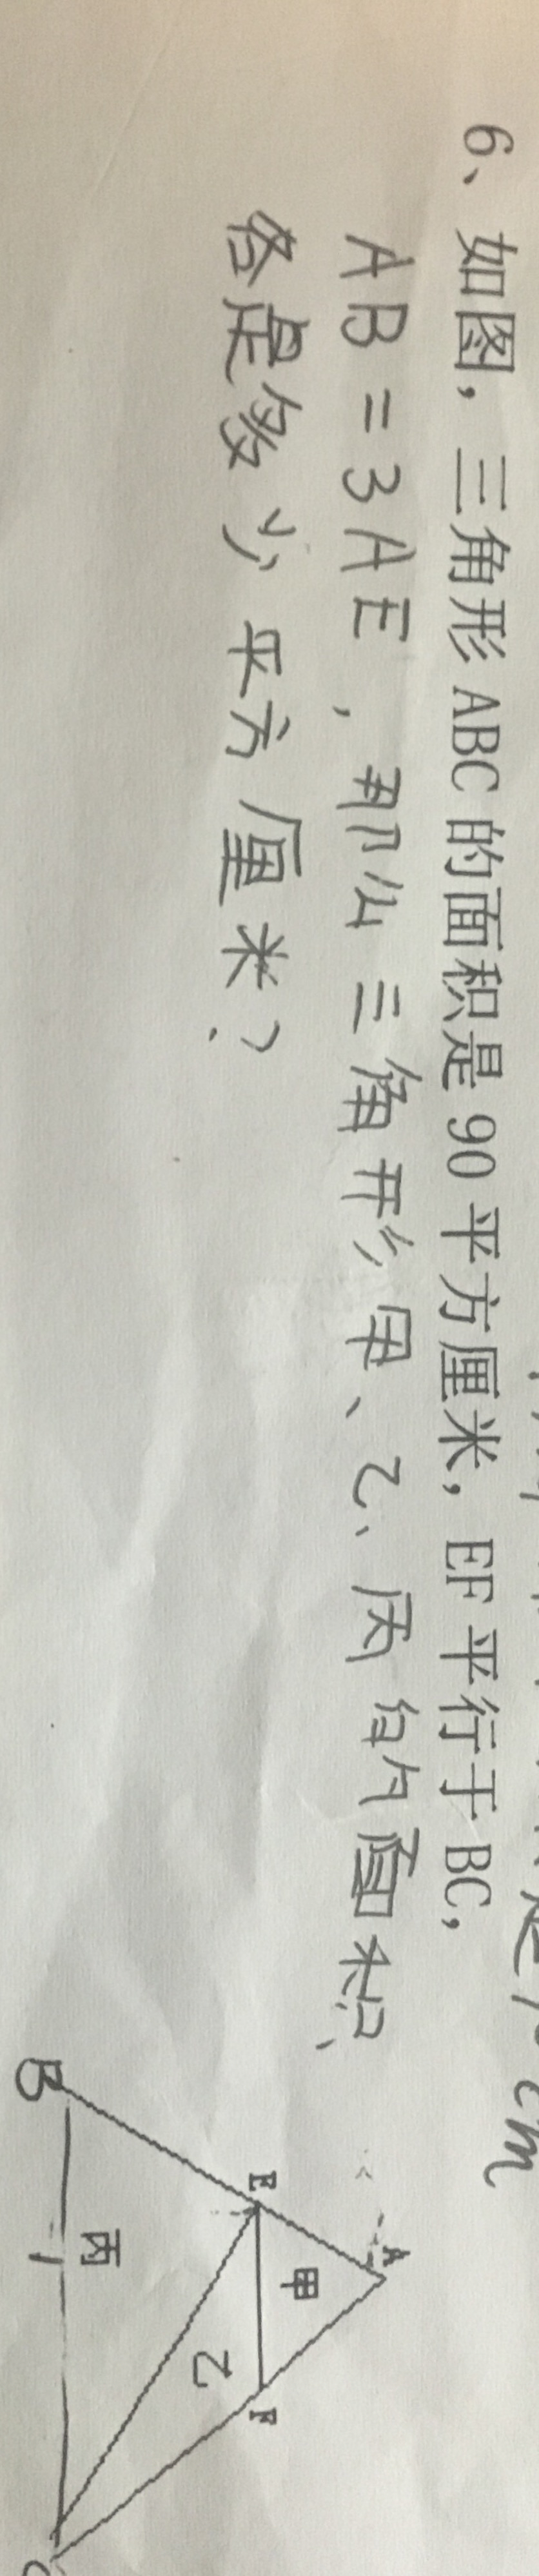 cm
6、如图，三角形ABC的面积是90平方厘米，EF平行于BC，
AB=3AE，那么三角形甲、乙、丙的面积
各是多少平方厘米？
A
甲
E
F
乙
丙
B